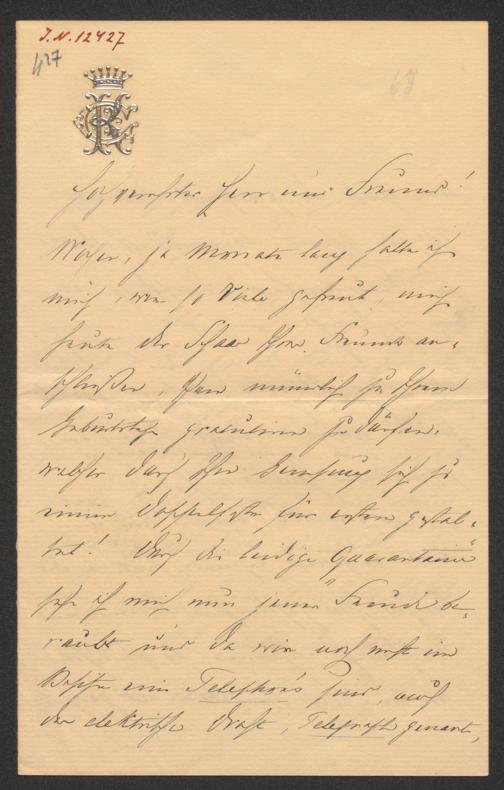 J.N. 12427
427
67
Hochverehrter Herr und Freund!
Wochen, ja Monate lang hatte ich
mich, wie so Viele gefreut, mich
heute der Schaar Ihrer Freunde an-
schließen, Ihnen mündlich zu Ihrem
Geburtstage gratuliren zu dürfen,
welcher durch Ihre Genesung sich zu
einem Doppelfeste für uns gestal-
tet! Durch die leidige "Quarantaine"
sehe ich mich nun jener Freude be-
raubt und da wir noch nicht im
Besitze eines Telephon's sind, auch
der elektrische Draht, Telegraph genannt,